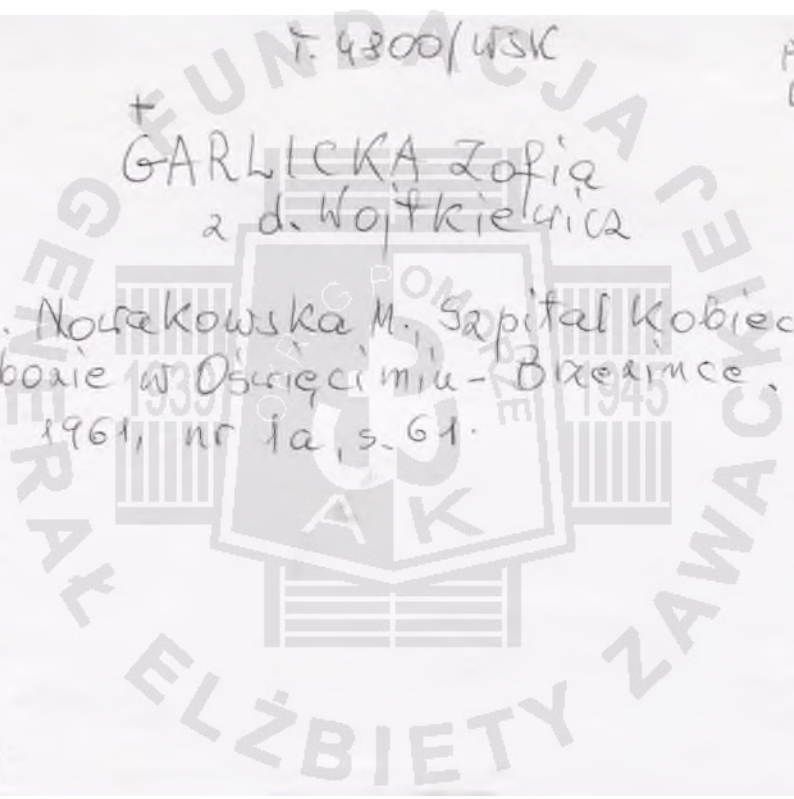 T. 4800/WSK
+
GARLICKA Zofia
z d. Wojtkiewicz
. Nowakowska M., Szpital Kobiec
bozie w Oświęcimiu - Brzezince.
1961, nr 1a, s. 61.
FUNDACJA GENERAŁ ELŻBIETY ZAWACKIEJ
1939 1945
AK